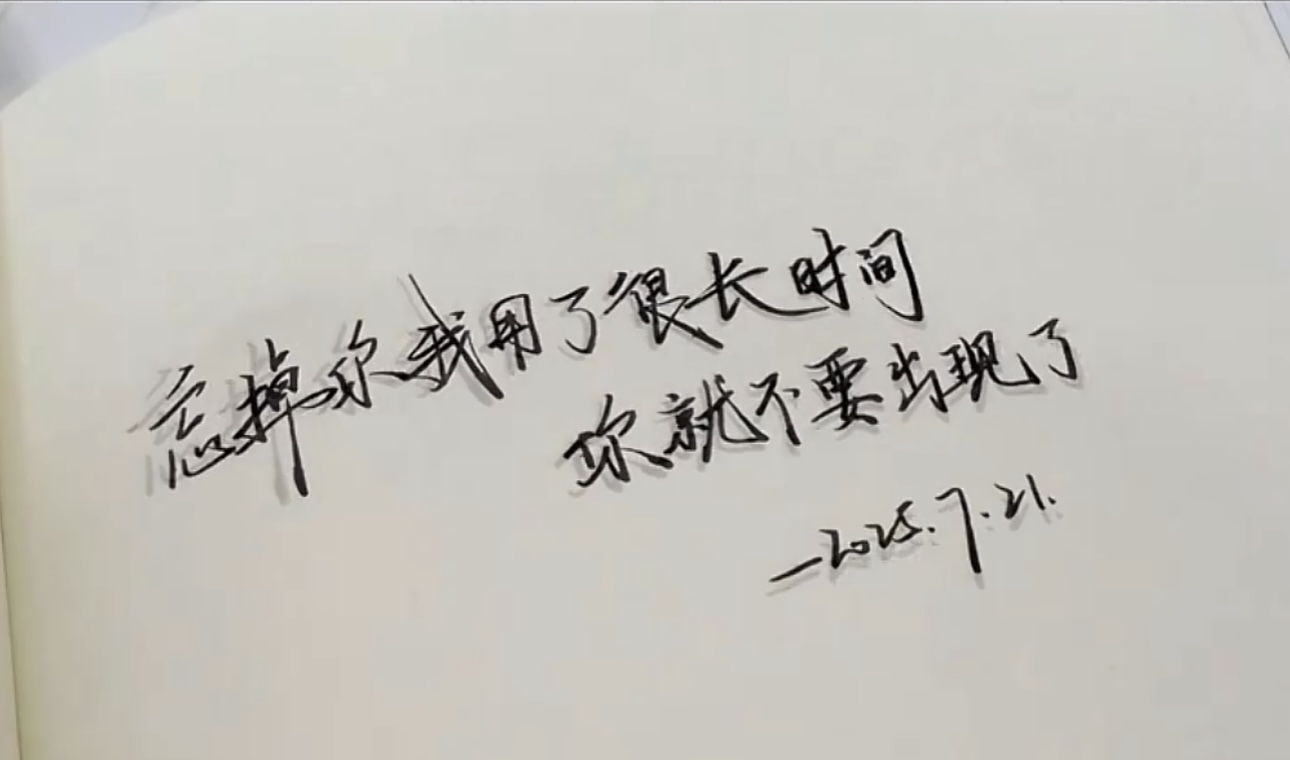 忘掉你我用了很长时间
你就不要出现了
—2025.7.21.